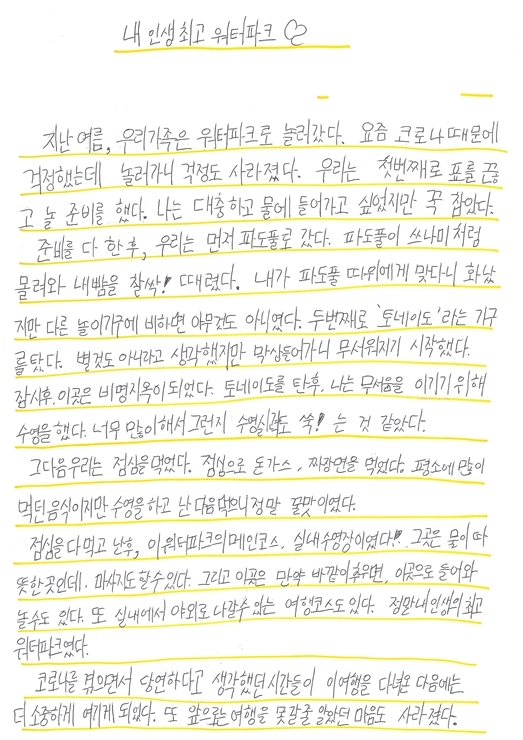 내 인생 최고 워터파크
지난 여름, 우리가족은 워터파크로 놀러갔다. 요즘 코로나 때문에
걱정했는데 놀러가니 걱정도 사라졌다. 우리는 첫번째로 표를 끊
고 놀 준비를 했다. 나는 대충하고 물에 들어가고 싶었지만 꾹 참았다.
준비를 다 한 후, 우리는 먼저 파도풀로 갔다. 파도풀이 쓰나미처럼
몰려와 내뺨을 찰싹! 때렸다. 내가 파도풀 따위에게 맞다니 화났
지만 다른 놀이기구에 비하면 아무것도 아니였다. 두번째로 '토네이도'라는 기구
를 탔다. 별것도 아니라고 생각했지만 막상들어가니 무서워지기 시작했다.
잠시후, 이곳은 비명지옥이 되었다. 토네이도를 탄후, 나는 무서움을 이기기 위해
수영을 했다. 너무 많이해서 그런지 수영실력도 쑥! 는 것 같았다.
그다음 우리는 점심을 먹었다. 점심으로 돈가스, 짜장면을 먹었다. 평소에 많이
먹던 음식이지만 수영을 하고 난 다음 먹으니 정말 꿀맛이였다.
점심을 다 먹고 난후, 이 워터파크의 메인코스, 실내수영장이였다! 그곳은 물이 따
뜻한 곳인데, 마사지도 할 수 있다. 그리고 이곳은 만약 바깥이 추우면, 이곳으로 들어와
놀 수도 있다. 또 실내에서 야외로 나갈수 있는 여행코스도 있다. 정말 내 인생의 최고
워터파크였다.
코로나를 겪으면서 당연하다고 생각했던 시간들이 이여행을 다녀온 다음에는
더 소중하게 여기게 되었다. 또 앞으로는 여행을 못갈줄 알았던 마음도 사라졌다.